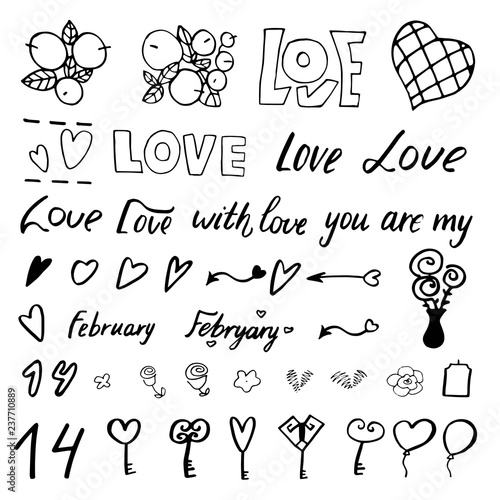 LOVE
LOVE Love Love
Love Love with love you are my
February Febryary
14
14
Adobe Stock | #237710889